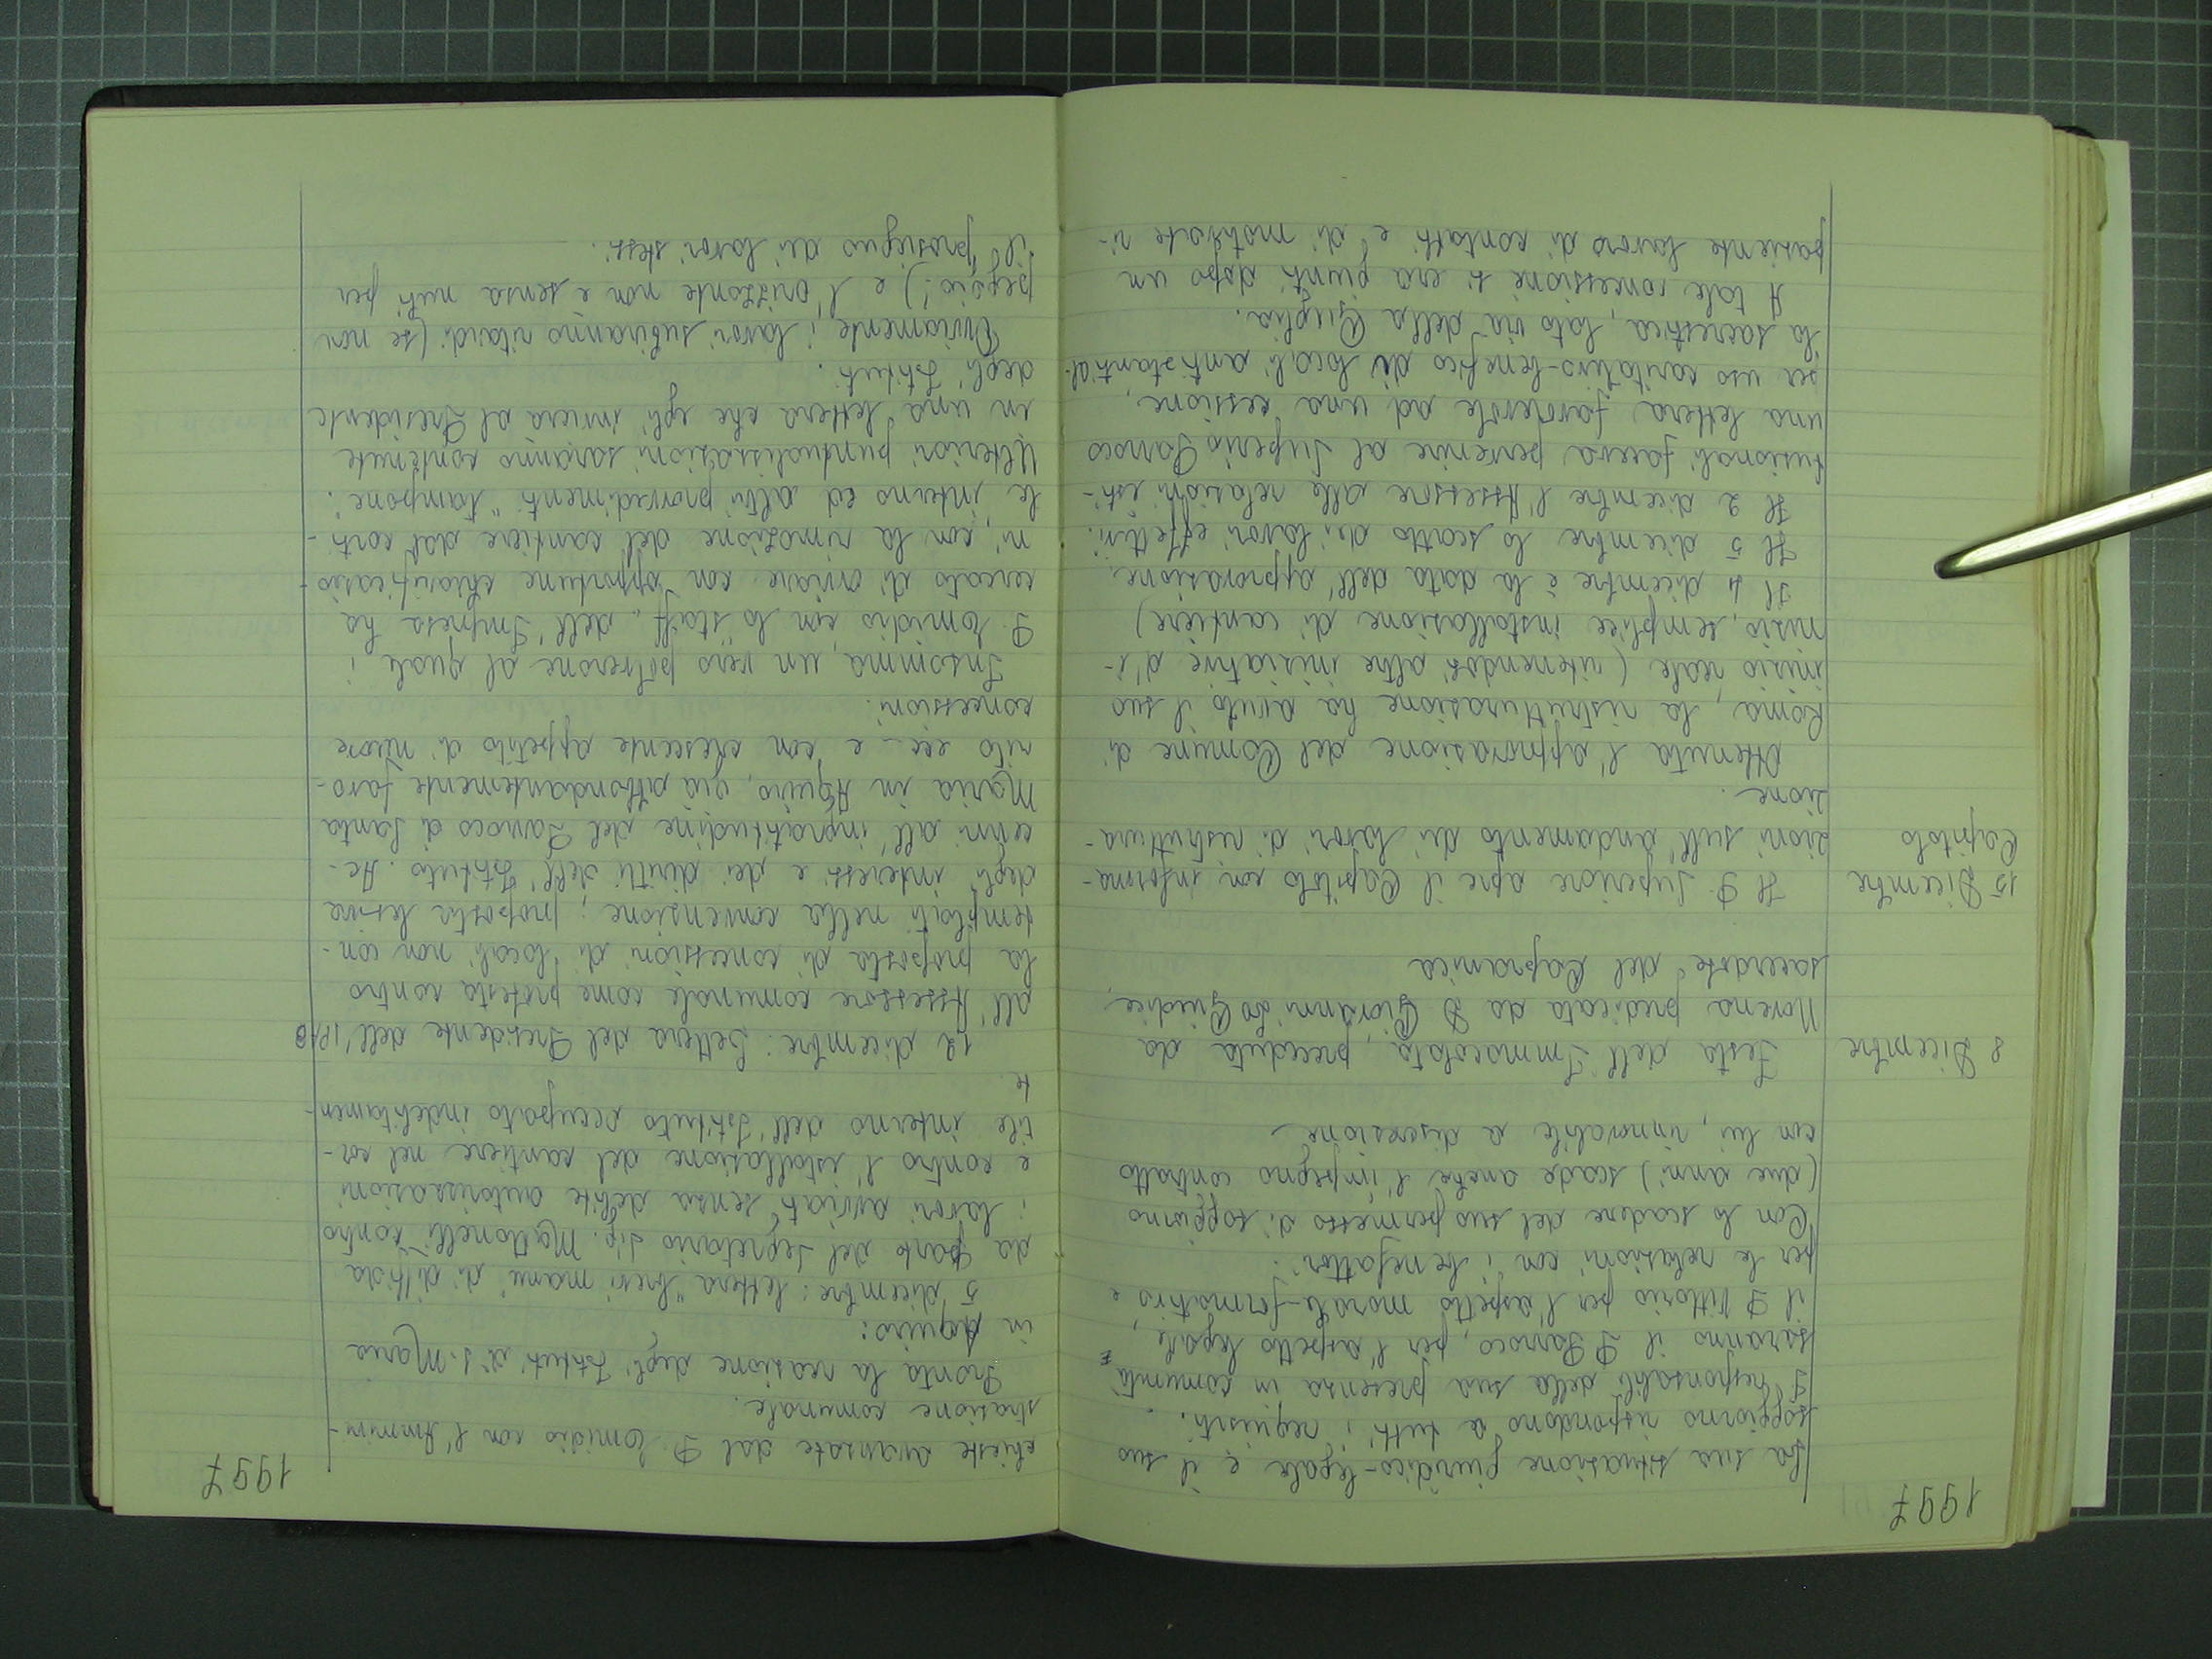 1997
La sua situazione giuridico-legale e il suo
soggiorno rispondono a tutti i requisiti.
I responsabili della sua presenza in comunità
saranno il P. Parroco, per l'aspetto legale,
il P. Vittorio per l'aspetto morale-formativo e
per le relazioni con i benefattori.
Con lo scadere del suo permesso di soggiorno
(due anni) scade anche l'impegno contratto
con lui, rinnovabile a discrezione
8 Dicembre
Festa dell'Immacolata, preceduta da
Novena predicata da D. Giovanni Lo Giudice,
sacerdote del Capranica
15 Dicembre
Capitolo
Il P. Superiore apre il Capitolo con informa-
zioni sull'andamento dei lavori di ristruttura-
zione.
Ottenuta l'approvazione del Comune di
Roma, la ristrutturazione ha avuto il suo
inizio reale (ritenendosi altre iniziative d'i-
nizio, semplice installazione di cantiere)
Il 4 dicembre è la data dell'approvazione.
Il 5 dicembre lo scatto dei lavori effettivi.
Il 2 dicembre l'Assessore alle relazioni isti-
tuzionali faceva pervenire al Superio Parroco
una lettera favorevole ad una cessione,
per uso caritativo-benefico di locali antistanti al-
la sacrestia, lato via della Guglia.
A tale concessione si era giunti dopo un
paziente lavoro di contatti e di motivate ri-
1997
chieste avanzate dal P. Emidio con l'Ammini-
strazione comunale.
Pronta la reazione degli Istituti di S. Maria
in Aquiro:
5 dicembre: lettera "brevi manu" di diffida
da parte del Segretario Sig. Mattonelli contro
i lavori avviati senza debite autorizzazioni
e contro l'istallazione del cantiere nel cor-
tile interno dell'Istituto occupato indebitamen-
te.
12 dicembre: Lettera del Presidente dell'IPAB
all'Assessore comunale come protesta contro
la proposta di concessioni di locali non con-
templati nella convenzione; proposta lesiva
degli interessi e dei diritti dell'Istituto. Ac-
cenni all'ingratitudine del Parroco di Santa
Maria in Aquiro, già abbondantemente favo-
rito ecc. e con crescente appetito di nuove
concessioni.
Insomma, un vero polverone al quale i
P. Emidio con lo "staff" dell'Impresa ha
cercato di ovviare con opportune chiarificazio-
ni, con la rimozione del cantiere dal corti-
le interno ed altri provvedimenti "tampone".
Ulteriori puntualizzazioni saranno contenute
in una lettera che egli invierà al Presidente
degli Istituti.
Ovviamente i lavori subiranno ritardi (se non
peggio!) e l'orizzonte non è senza nubi per
il prosieguo dei lavori stessi.